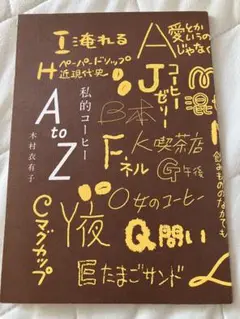 I 淹れる
H ペーパードリップ
近現代史
A 愛とか
いうの
じゃなく
J コーヒー
ゼリー
私的コーヒー
A to Z
木村衣有子
B 本
F ネル
K 喫茶店
G 午後
飲みものなかでも
O 女のコーヒー
C マグカップ
Y 夜
Q 問い
E たまごサンド
L